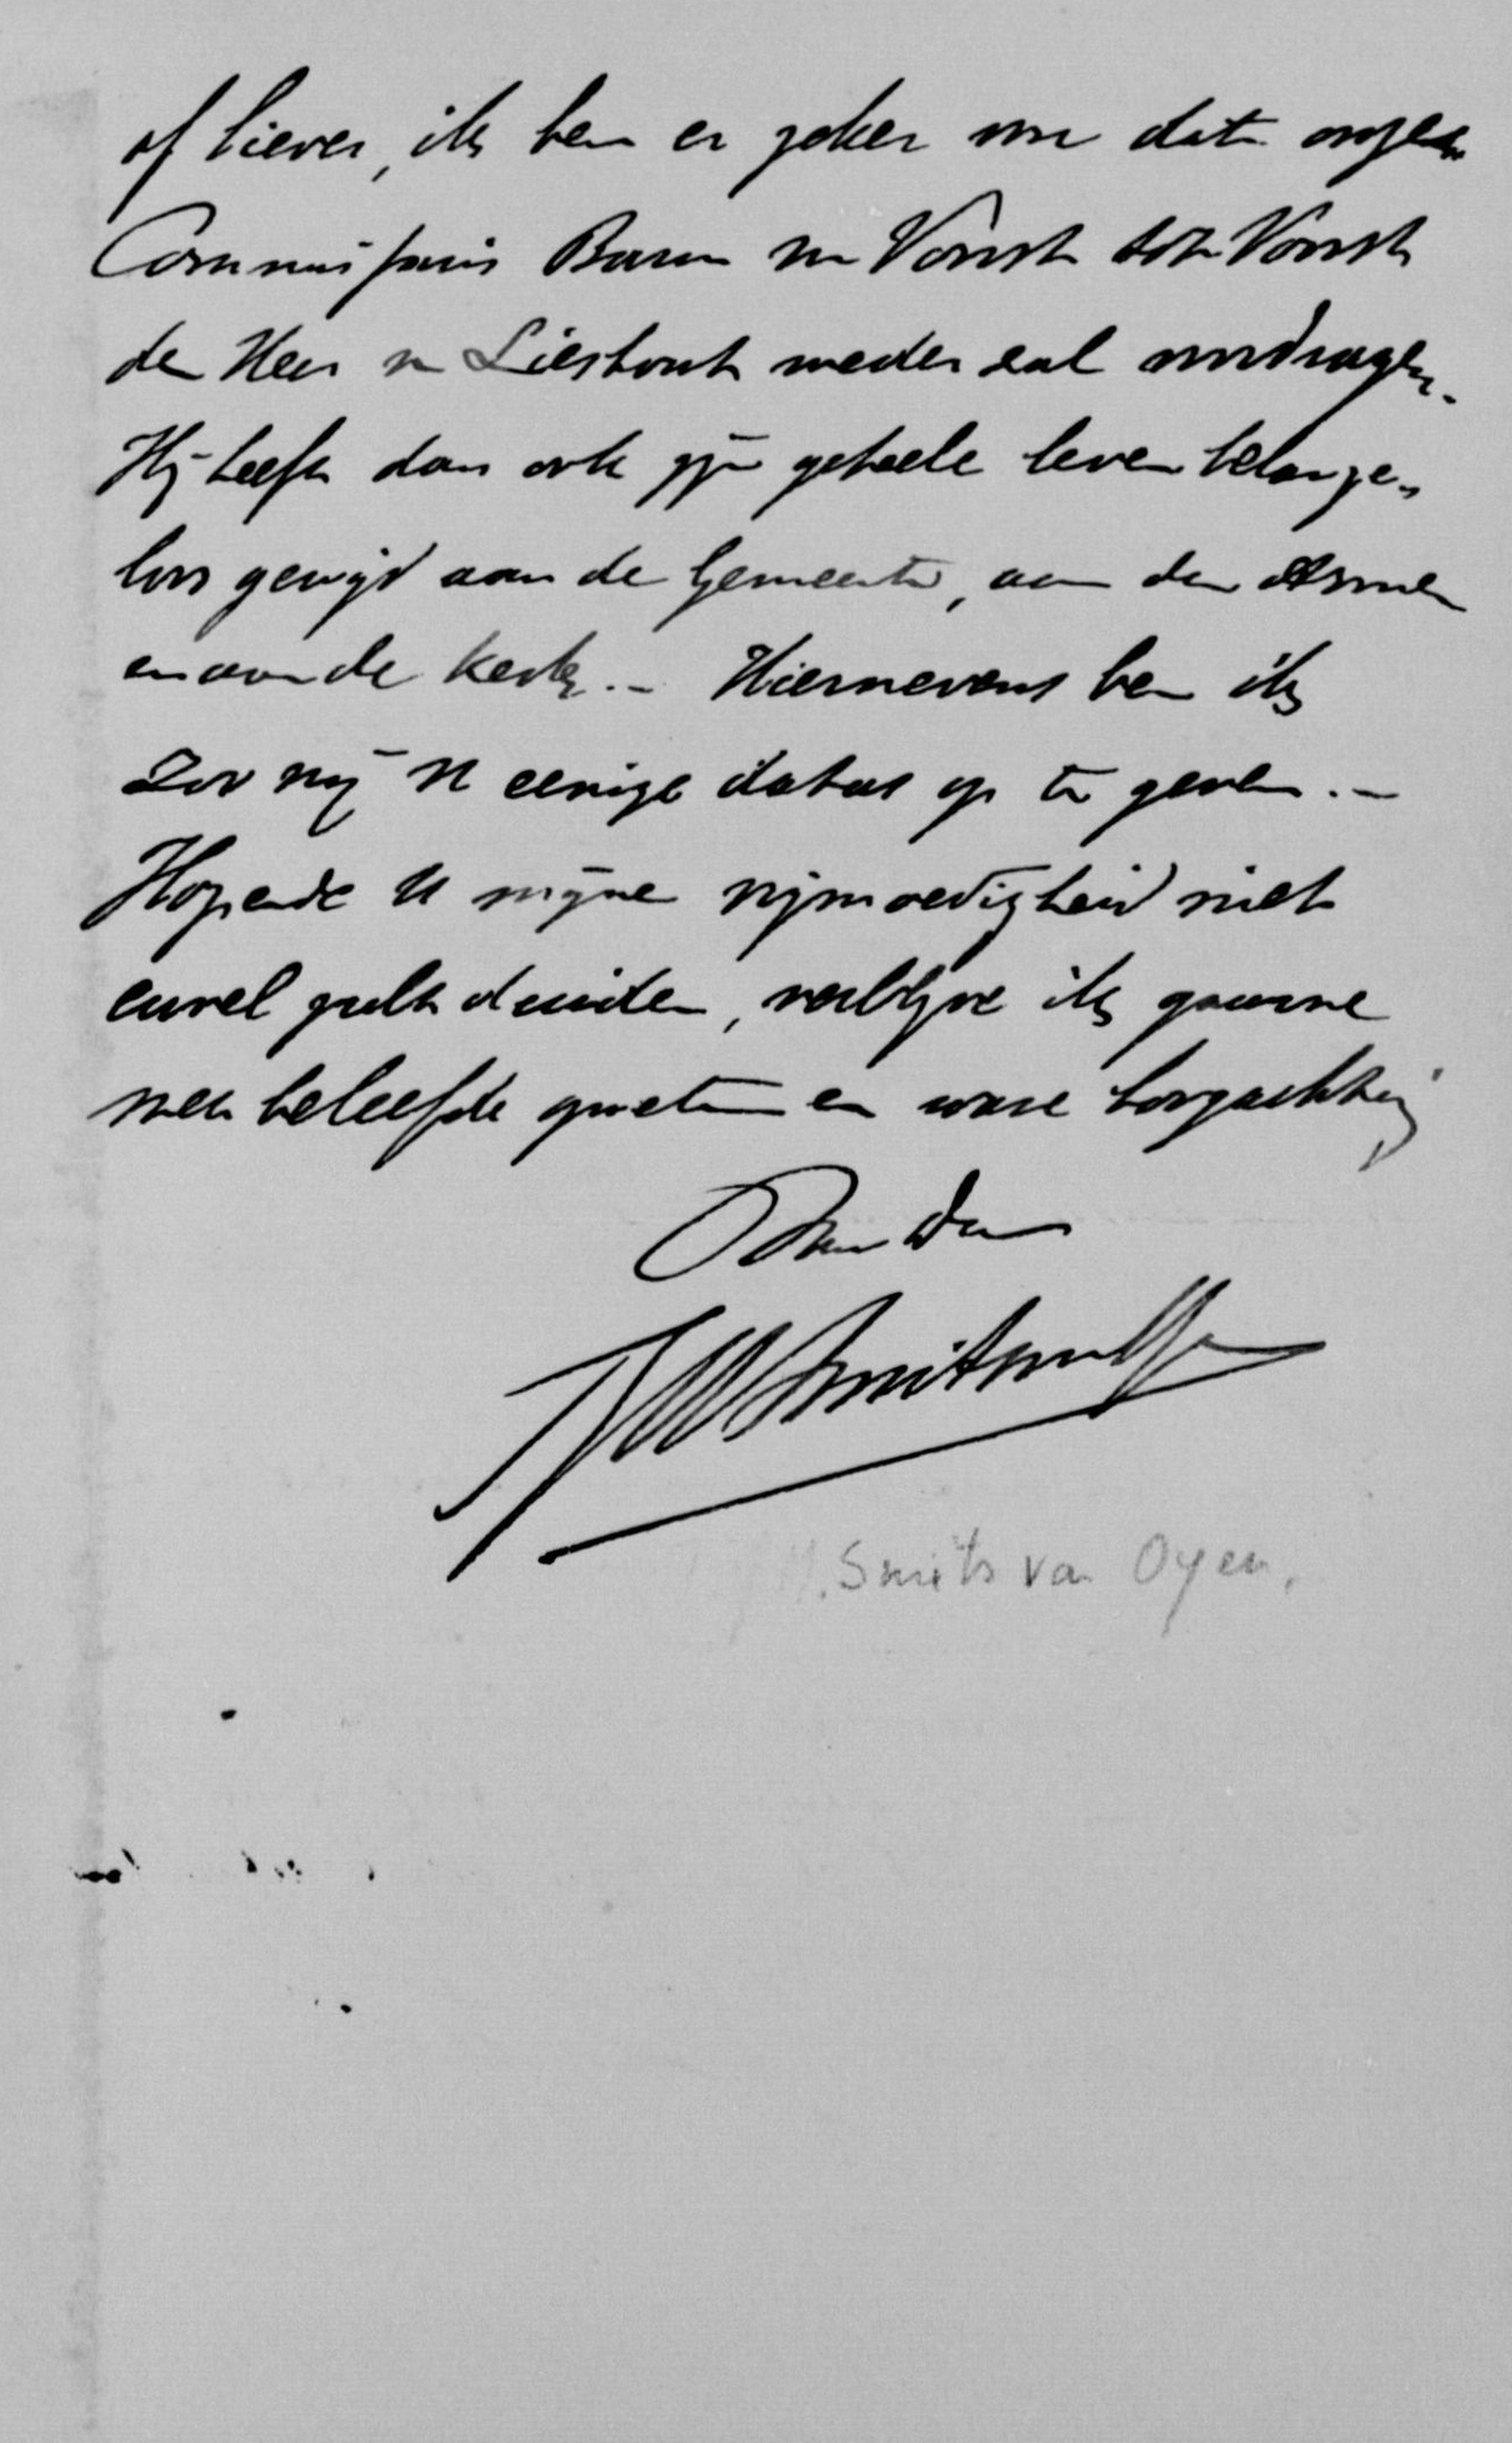 of liever, ik ben er zeker van dat onzen
Commissaris Baron van Voorst tot Voorst
den Heer v Lieshout weder zal voordragen.
Hij heeft dan ook zijn geheele leven belange-
loos gewijd aan de Gemeente, aan den Armen
en aan de kerk. – Hiernevens ben ik
zoo vrij U eenige datas op te geven. –
Hopende U mijne vrijmoedigheid niet
euvel zult duiden, verblijve ik gaarne
met beleefde groeten en ware hoogachting
Uw dw
Smits van Oyen.